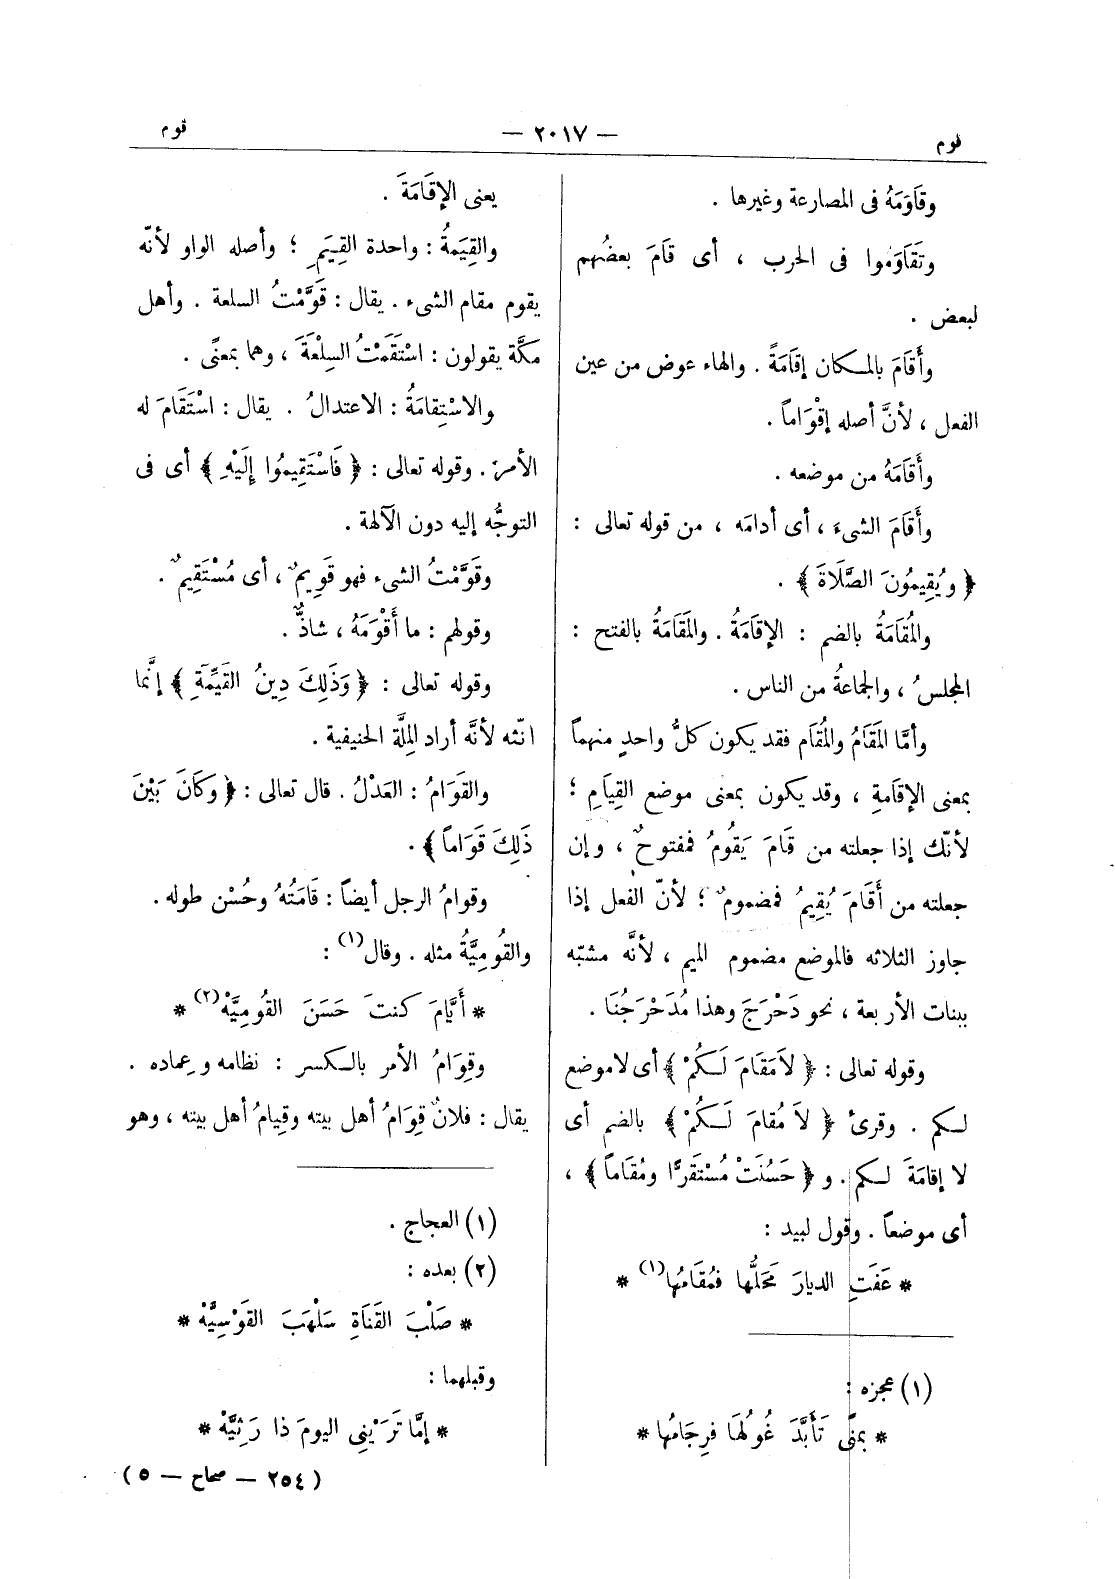 قوم
— ٢٠١٧ —
قوم
وقَاوَمَهُ فى المصارعة وغيرها .
وتَقَاوَمُوا فى الحرب ، أى قَامَ بعضُهم
لبعض .
وأَقَامَ بالمكان إقَامَةً . والهاء عوض من عين
الفعل ، لأنَّ أصله إقْوَاماً .
وأَقَامَهُ من موضعه .
وأَقَامَ الشىءَ ، أى أدامَه ، من قوله تعالى :
﴿ ويُقِيمُونَ الصَّلَاةَ ﴾ .
والمُقَامَةُ بالضم : الإقَامَةُ . والمَقَامَةُ بالفتح :
المجلسُ ، والجماعةُ من الناس .
وأمَّا المَقَامُ والمُقَام فقد يكون كلُّ واحدٍ منهماً
بمعنى الإقامةِ ، وقد يكون بمعنى موضع القِيَامِ ؛
لأنّك إذا جعلته من قَامَ يَقُومُ فمفتوحٌ ، وإن
جعلته من أَقَامَ يُقِيمُ فمضمومٌ ؛ لأنّ الفعل إذا
جاوز الثلاثه فالموضع مضموم الميم ، لأنَّه مشبّه
ببنات الأربعة ، نحو دَحْرَجَ وهذا مُدَحْرَجُنَا .
وقوله تعالى : ﴿ لاَمَقَامَ لَكُمْ ﴾ أى لاموضع
لكم . وقرئ ﴿ لاَ مُقامَ لَكُمْ ﴾ بالضم أى
لا إقامَةَ لكم . و ﴿ حَسُنَتْ مُسْتَقَرًّا ومُقَاماً ﴾ ،
أى موضعاً . وقول لبيد :
* عَفَتِ الديارَ مَحَلُّها فمُقَامُها(١) *
(١) عجزه :
* بمنًى تَأَبَّدَ غُولُهَا فرِجَامُها *
يعنى الإقَامَةَ .
والقِيَمةُ : واحدة القِيَمِ ؛ وأصله الواو لأنّه
يقوم مقام الشىء . يقال : قَوَّمْتُ السلعة . وأهل
مكَّة يقولون : اسْتَقَمْتُ السِلْعَةَ ، وهما بمعنًى .
والاسْتِقامَةُ : الاعتدالُ . يقال : اسْتَقَامَ له
الأمرُ . وقوله تعالى : ﴿ فَاسْتَقِيمُوا إِلَيْهِ ﴾ أى فى
التوجُّه إليه دون الآلهة .
وقَوَّمْتُ الشىء فهو قَوِيمٌ ، أى مُسْتَقِيمٌ .
وقولهم : ما أَقْوَمَهُ ، شاذٌّ .
وقوله تعالى : ﴿ وَذَلِكَ دِينُ القَيِّمَةِ ﴾ إنَّما
انّثه لأنَّه أراد المِلَّة الحنيفية .
والقَوَامُ : العَدْلُ . قال تعالى : ﴿ وكَانَ بَيْنَ
ذَلِكَ قَوَاماً ﴾ .
وقوامُ الرجل أيضاً : قَامَتُهُ وحُسْن طوله .
والقُومِيَّةُ مثله . وقال(١) :
* أَيَّامَ كنتَ حَسَنَ القُومِيَّهْ(٢) *
وقِوَامُ الأمر بالكسر : نظامه وعِماده .
يقال : فلانٌ قِوَامُ أهل بيته وقِيامُ أهل بيته ، وهو
(١) العجاج .
(٢) بعده :
* صَلْبَ القَنَاةِ سَلْهَبَ القَوْسِيَّهْ *
وقبلهما :
* إمَّا تَرَيْنِى اليومَ ذا رَثِيَّهْ *
(٢٥٤ — صحاح — ٥)